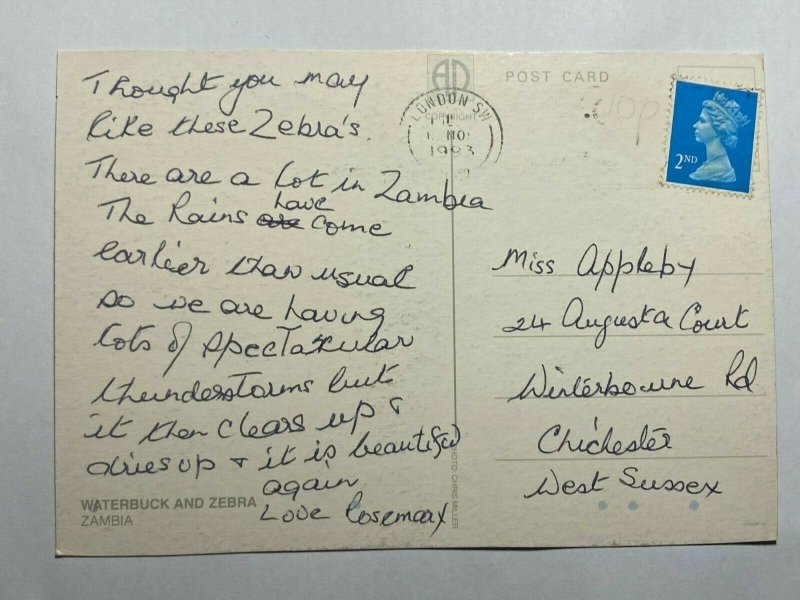 Thought you may
like these Zebra's.
There are a lot in Zambia
The Rains are have come
earlier than usual
so we are having
lots of spectatular
thunderstorms but
it then clears up &
dries up & it is beautiful
again
Love Rosemary
WATERBUCK AND ZEBRA
ZAMBIA
PHOTO CHRIS MILLER
COPYRIGHT
POST CARD
LONDON SW
1993
10p
2ND
Miss Appleby
24 Augusta Court
Winterbourne Rd
Chichester
West Sussex